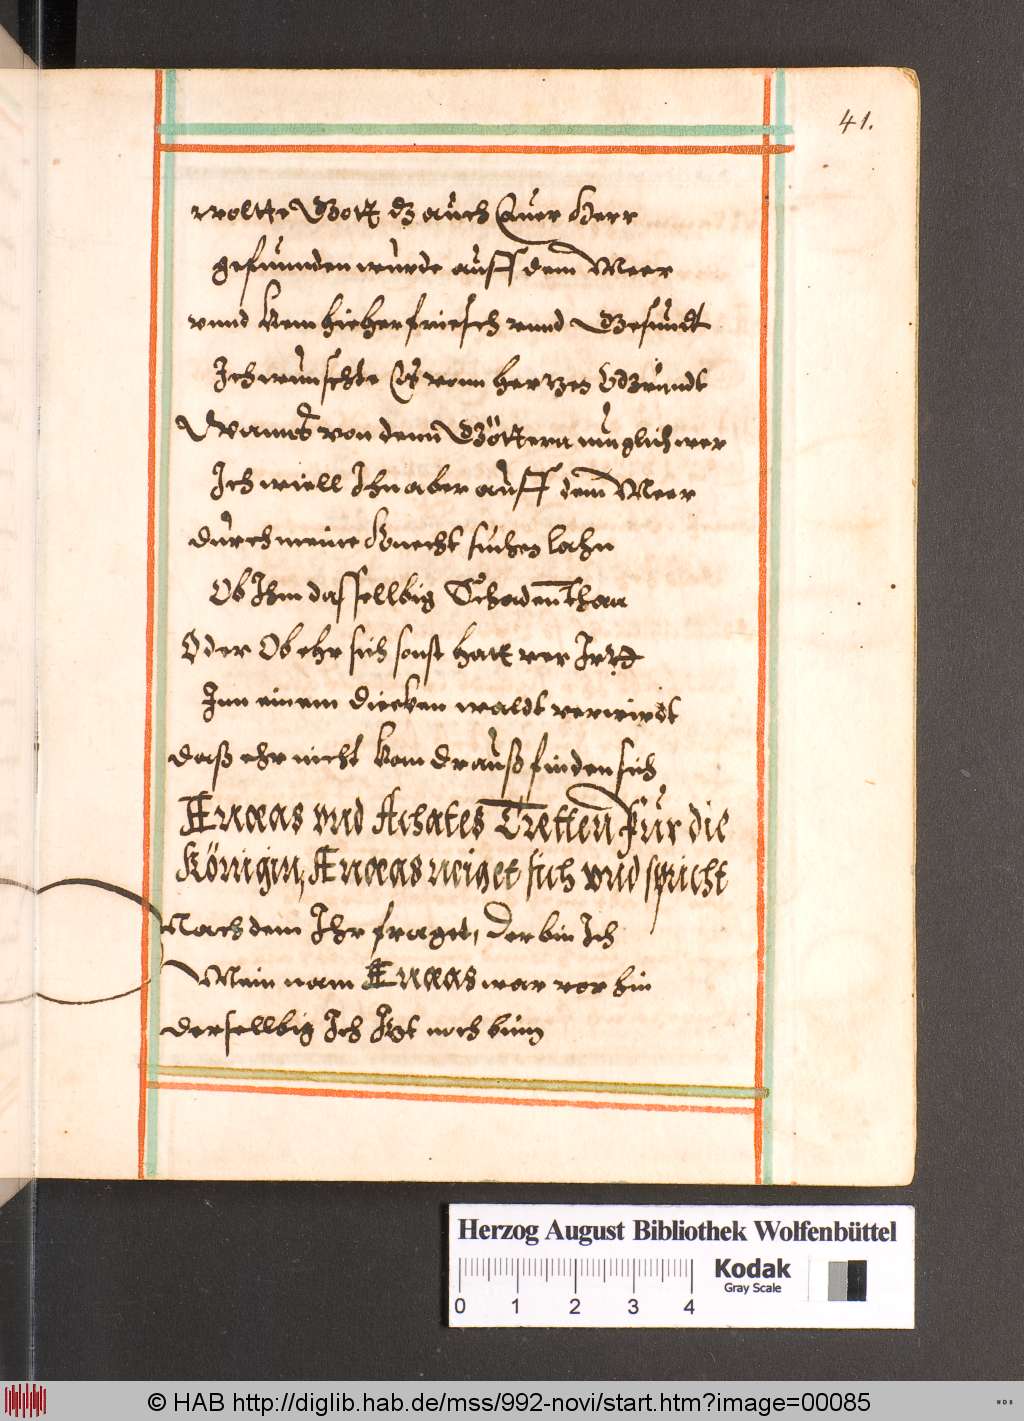 41.
woltte Gott dz auch Euer Herr
gefuunden würde auff dem Meer
vnnd kem hieher friesch vnnd Gesundt
Ich wünschte Es vonn hertzen
Wams von denn Göttern müglich wer
Ich wiell Ihn aber auff dem Meer
durch meine Knecht suchen lahn
Ob Ihm dassellbig Schaden than
Oder Ob ehr sich sonst hatt ver Irtt
Inn einem dicken waldt verwirdt
daß ehr nicht kan drauß finden sich
Æneas vnd Achates Tretten für die
Königin, Æneas neiget sich vnd spricht
Nach dem Ihr fraget, der bin Ich
Mein nam Æneas war vor hin
dersellbig Ich Itzt noch binn
Herzog August Bibliothek Wolfenbüttel
Kodak
Gray Scale
0 1 2 3 4
© HAB http://diglib.hab.de/mss/992-novi/start.htm?image=00085